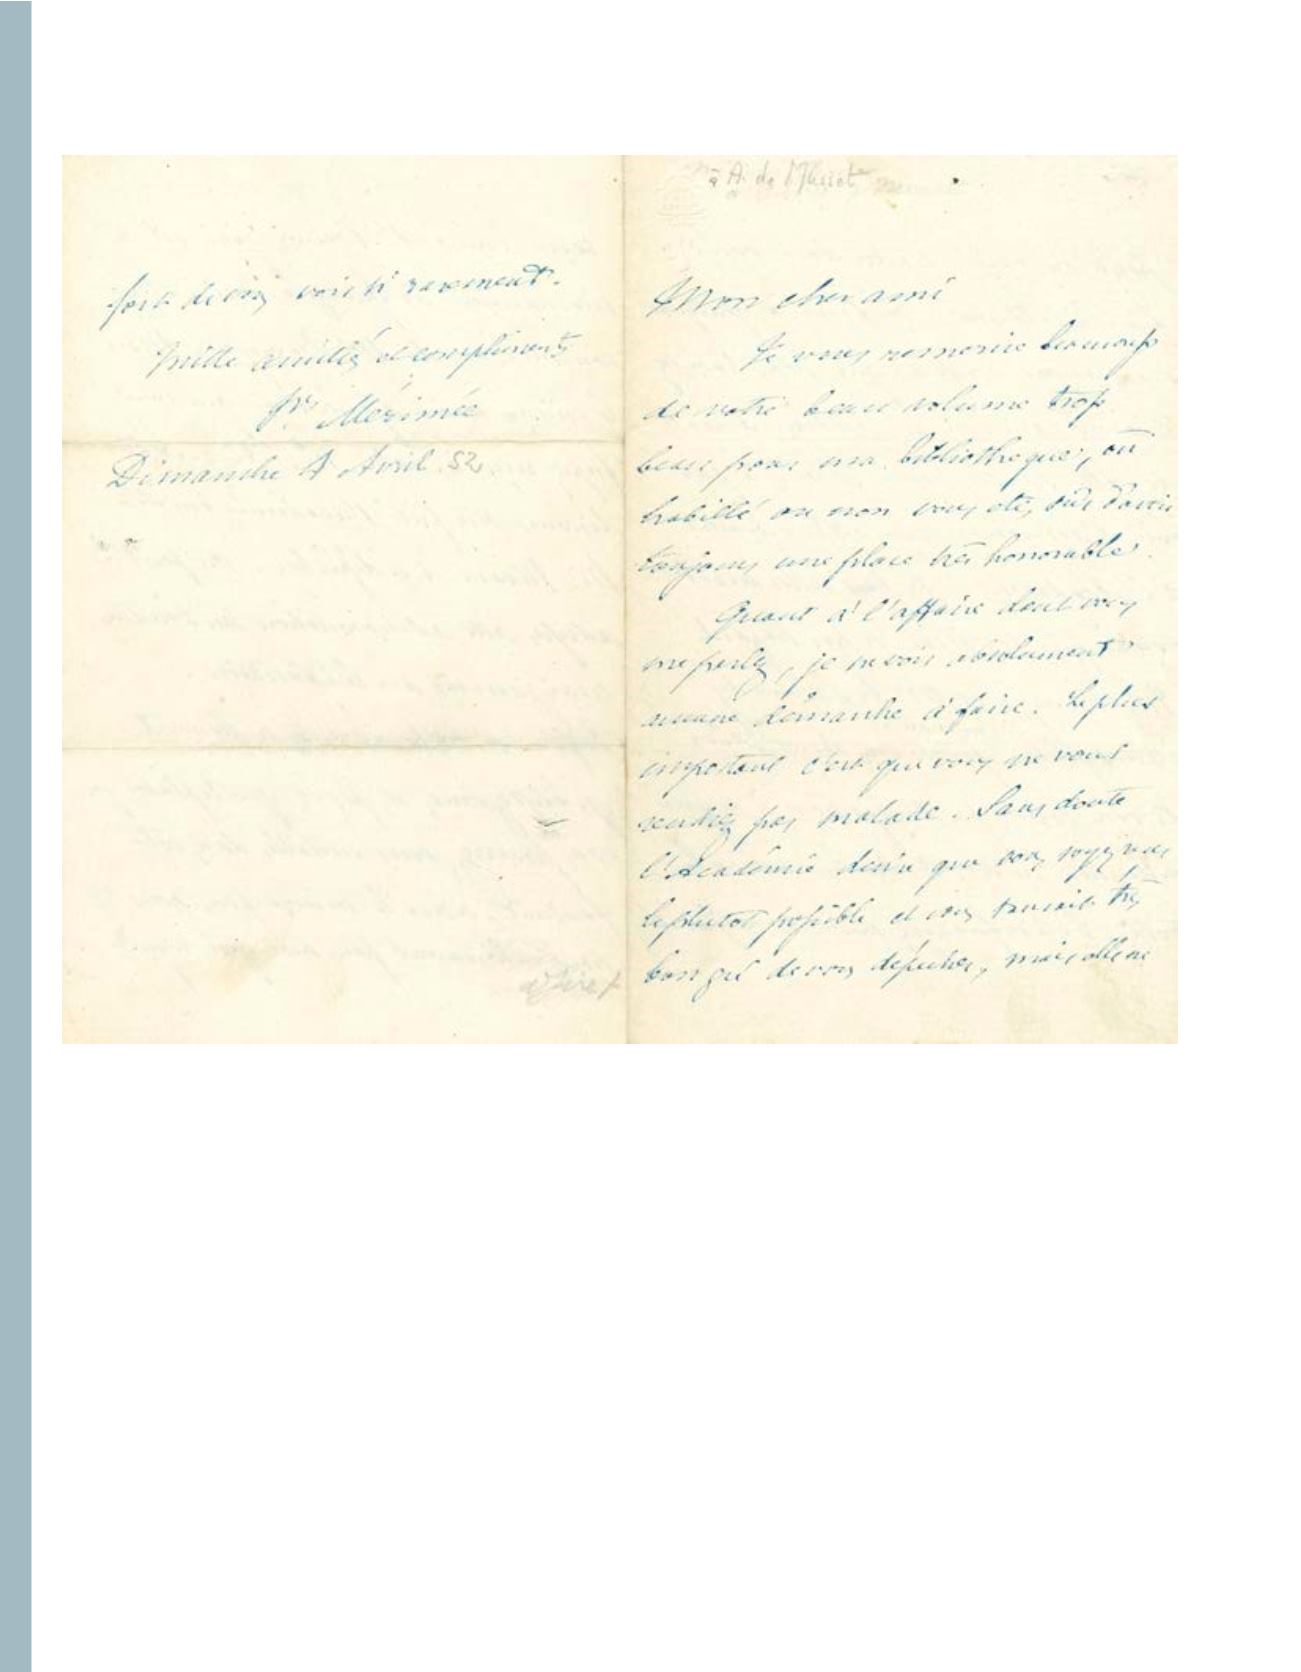 à A. de Musset
Mon cher ami
Je vous remercie beaucoup
de votre beau volume trop
beau pour ma bibliothèque, où
habillé ou non vous êtes sûr d'avoir
toujours une place très honorable.
Quant à l'affaire dont vous
me parlez, je ne vois absolument
aucune démarche à faire. Le plus
important c'est que vous ne vous
rendiez pas malade. Sans doute
l'Académie désire que vous soyez reçu
le plutot possible et vous sauroit très
bon gré de vous dépêcher, mais elle ne
fois de vous voir si rarement.
Mille amitiés et compliments
Pr Mérimée
Dimanche 4 Avril. 52